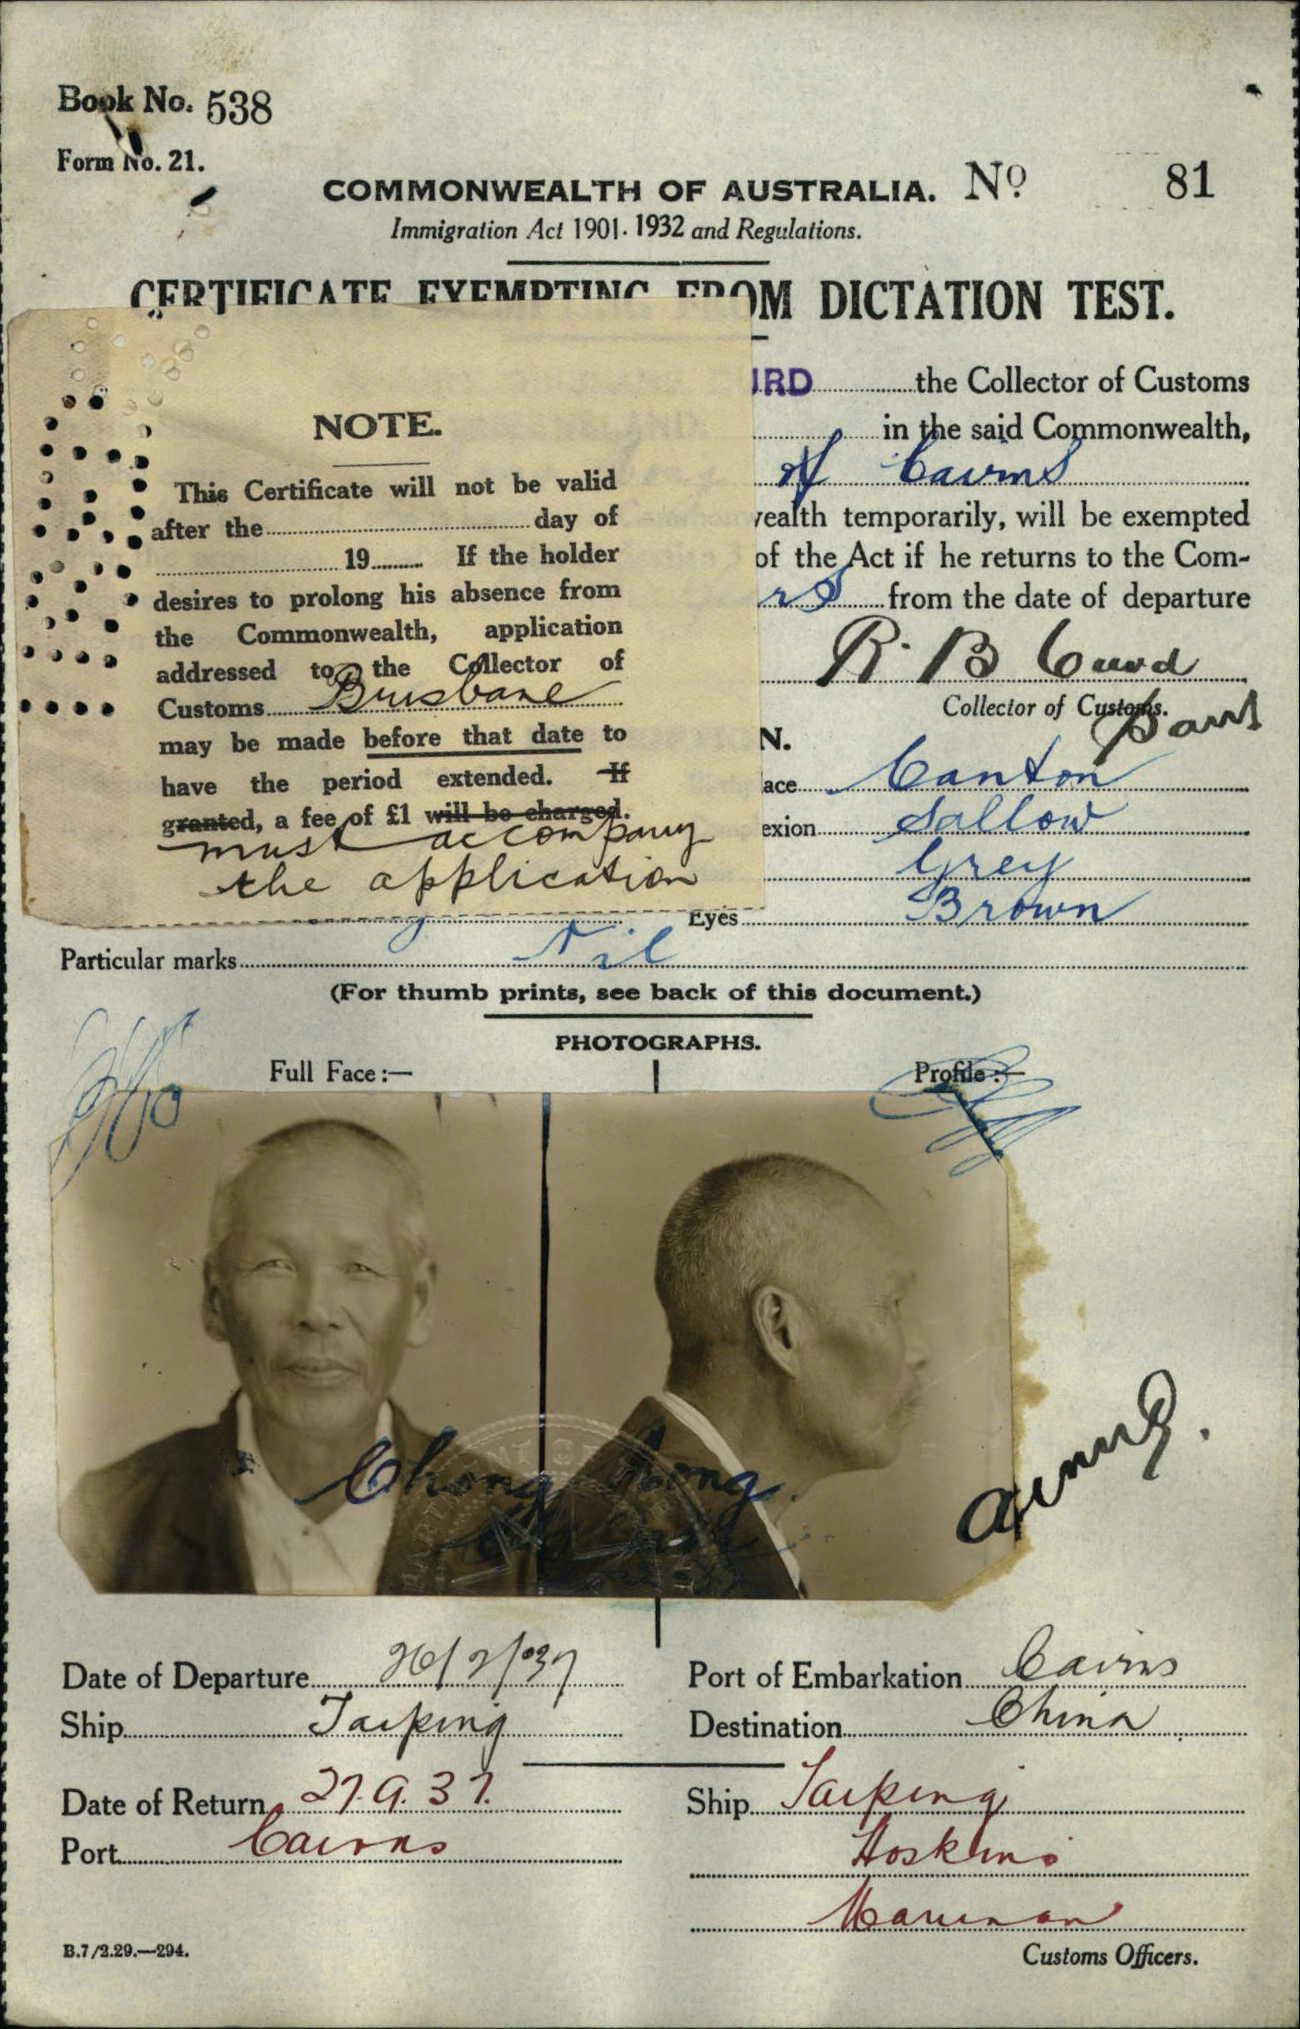 Book No. 538
Form No. 21.
COMMONWEALTH OF AUSTRALIA. Nº 81
Immigration Act 1901-1932 and Regulations.
CERTIFICATE EXEMPTING FROM DICTATION TEST.
NOTE.
This Certificate will not be valid
after the day of
19 If the holder
desires to prolong his absence from
the Commonwealth, application
addressed to the Collector of
Customs Brisbane
may be made before that date to
have the period extended. If
granted, a fee of £1 will be charged.
must accompany
the application
IRD the Collector of Customs
in the said Commonwealth,
of Cairns
wealth temporarily, will be exempted
of the Act if he returns to the Com-
rs from the date of departure
R. B. Curd
Collector of Customs.
N.
ace Canton
exion Sallow
Grey
Eyes Brown
Particular marks Nil
(For thumb prints, see back of this document.)
PHOTOGRAPHS.
Full Face :— Profile :—
Chong
Date of Departure 26/2/37 Port of Embarkation Cairns
Ship Taiping Destination China
Date of Return 27.9.37. Ship Taiping
Port Cairns Hoskins
B.7/2.29.—294. Customs Officers.